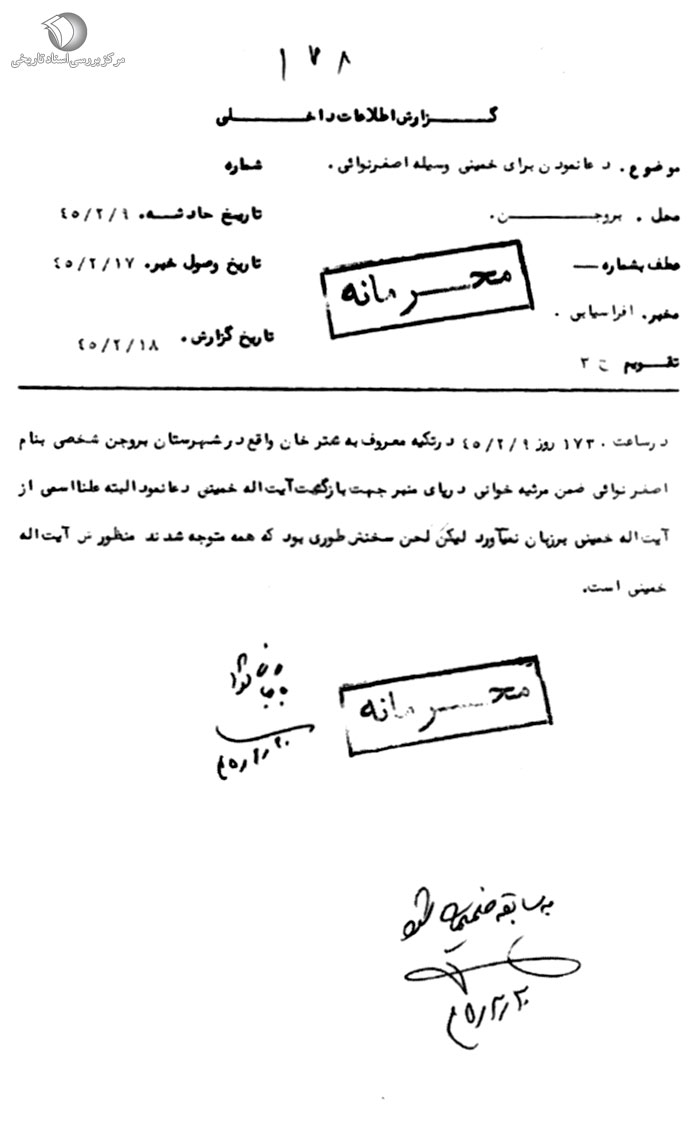 مرکز بررسی اسناد تاریخی
۱۷۸
گزارش اطلاعات داخلی
موضوع. دعا نمودن برای خمینی وسیله اصغر نوائی. شماره
محل. بروجن. تاریخ حادثه. ۴۵/۲/۹
عطف بشماره — تاریخ وصول خبر. ۴۵/۲/۱۷
محرمانه
مخبر. افراسیابی. تاریخ گزارش. ۴۵/۲/۱۸
تقویم ج ۳
در ساعت ۱۷۳۰ روز ۴۵/۲/۹ در تکیه معروف به عتر خان واقع در شهرستان بروجن شخصی بنام
اصغر نوائی ضمن مرثیه خوانی در پای منبر جهت بازگشت آیت اله خمینی دعا نمود البته علنا اسمی از
آیت اله خمینی برزبان نمیآورد لیکن لحن سخنش طوری بود که همه متوجه شدند منظورش آیت اله
خمینی است.
محرمانه
به سابقه ضمیمه شود